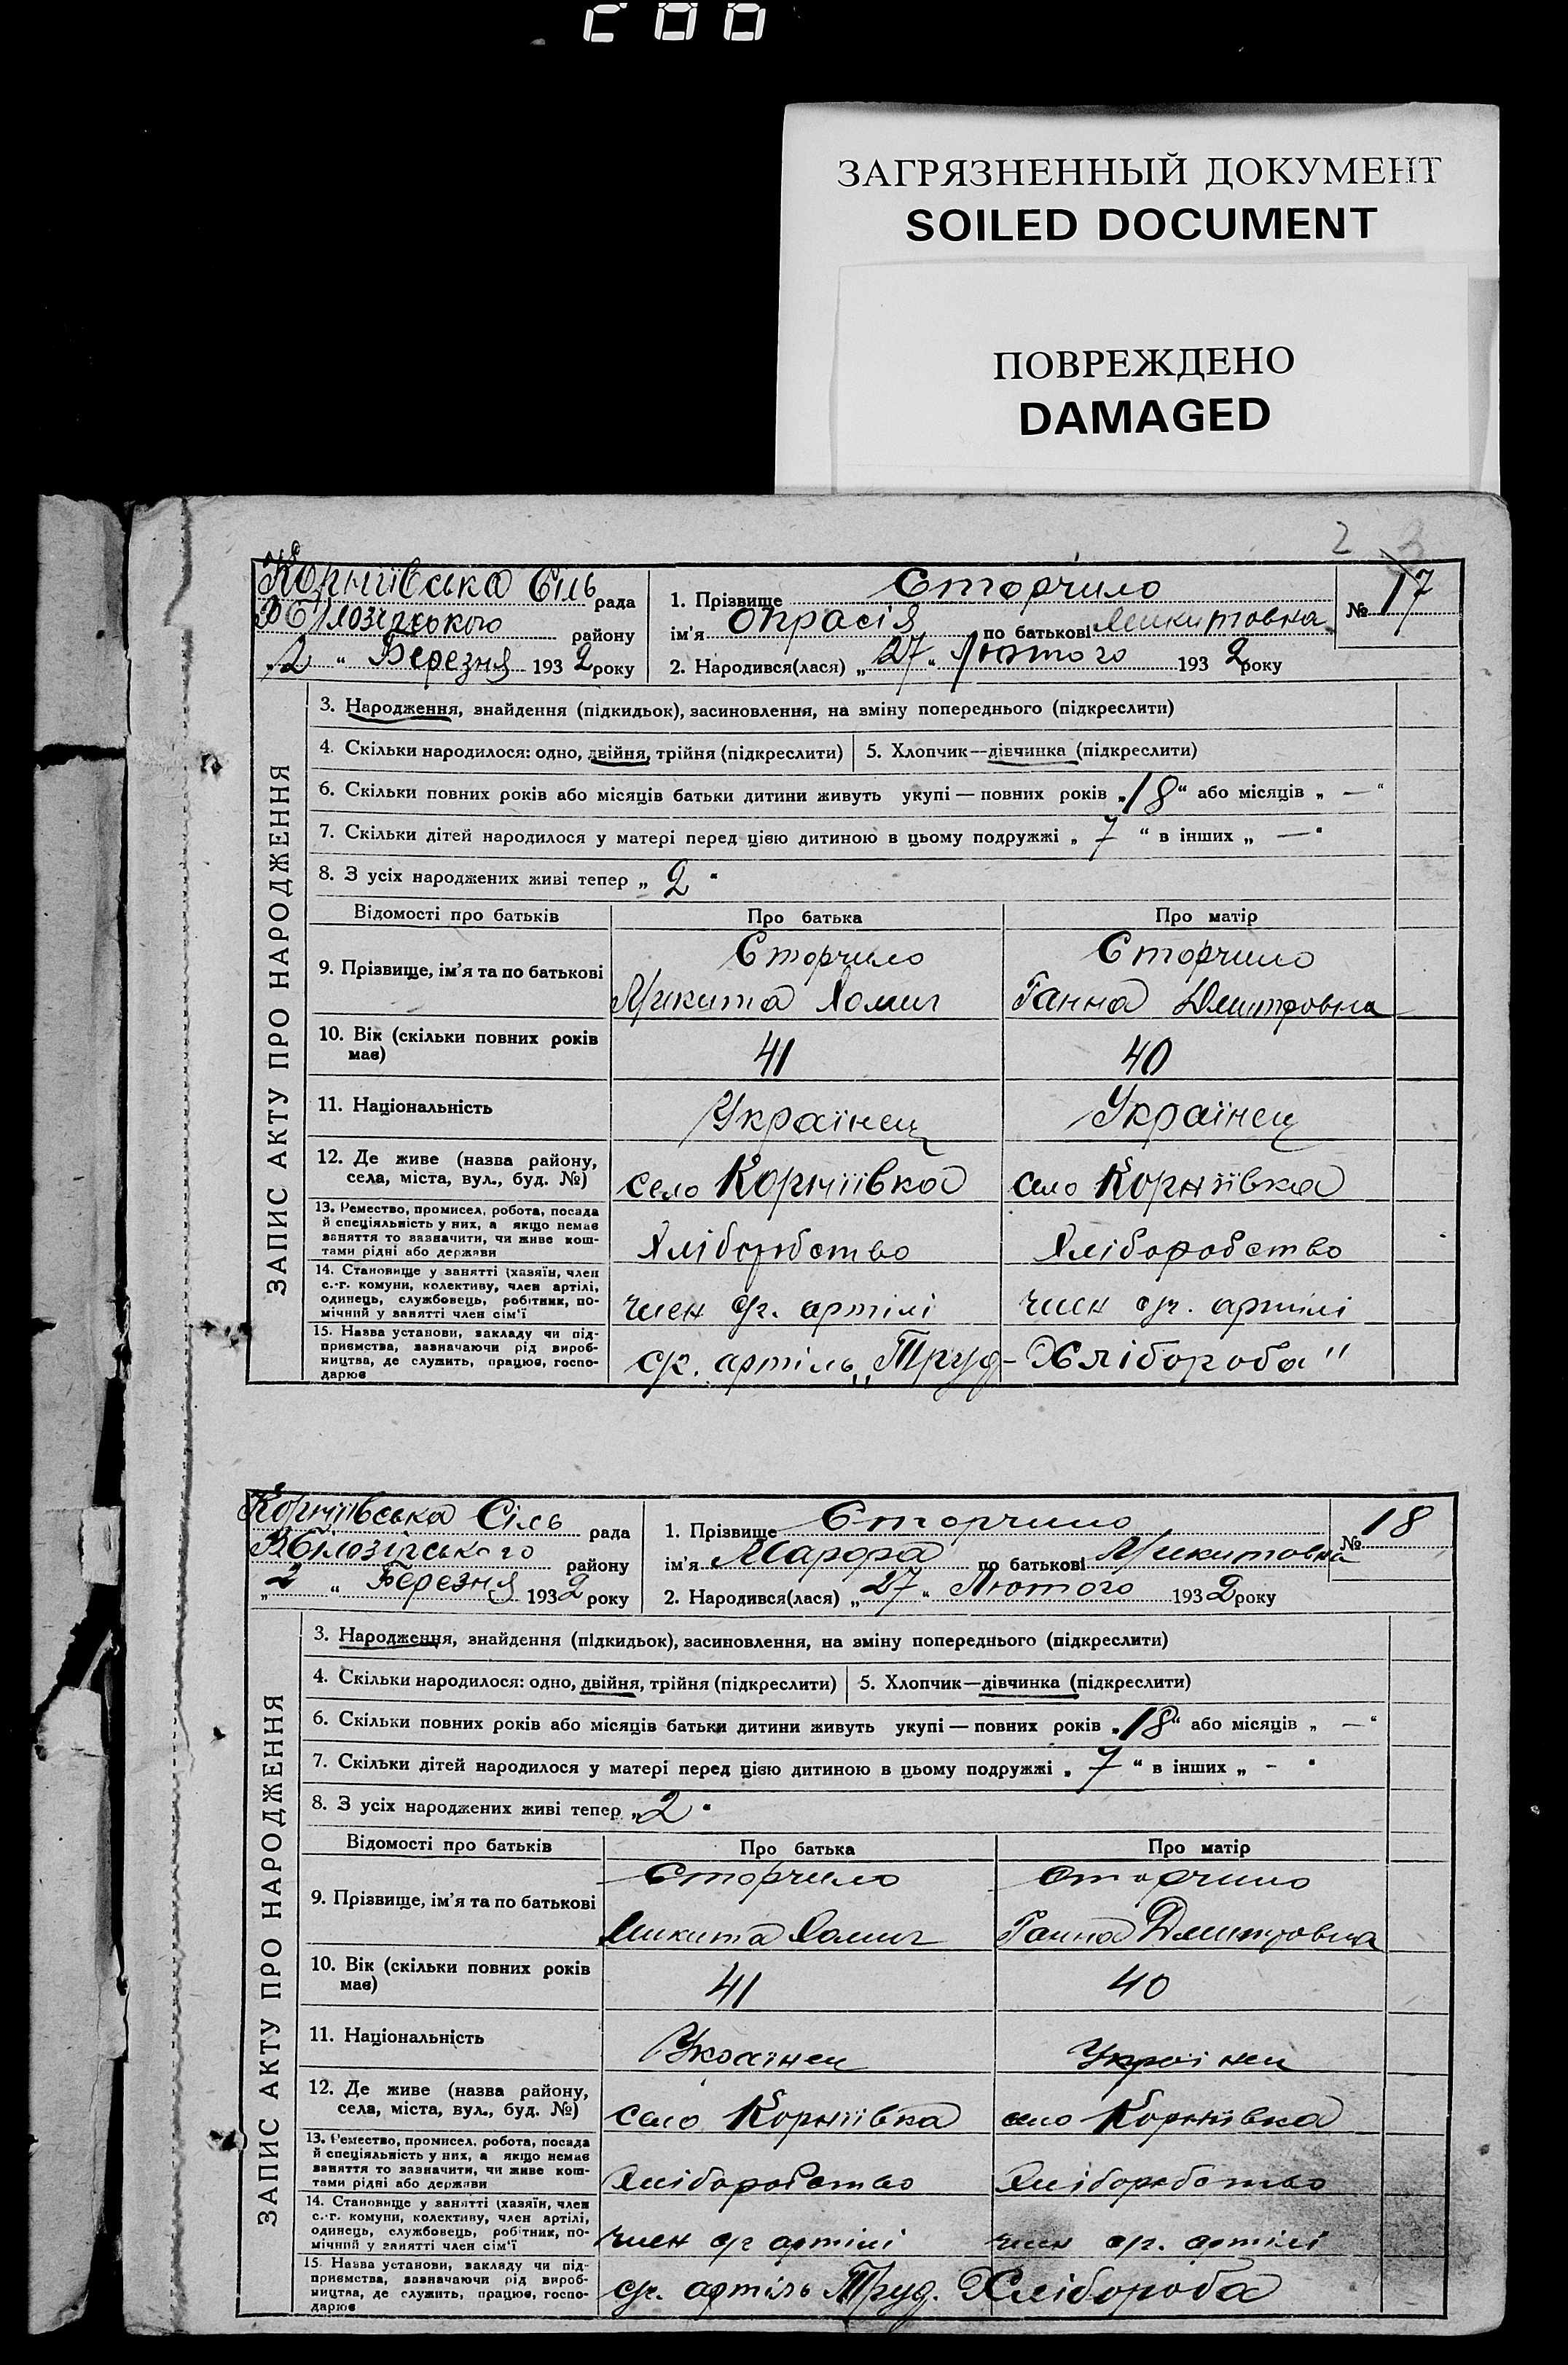 ЗАГРЯЗНЕННЫЙ ДОКУМЕНТ
SOILED DOCUMENT
ПОВРЕЖДЕНО
DAMAGED
2
Корніївська Сіль рада
району
2 " Березня 1932 року
1. Прізвище Сторчило
ім'я Опрасія по батькові Микитовна
2. Народився(лася) „27" Лютого 1932 року
№ 17
ЗАПИС АКТУ ПРО НАРОДЖЕННЯ
3. Народження, знайдення (підкидьок), засиновлення, на зміну попереднього (підкреслити)
4. Скільки народилося: одно, двійня, трійня (підкреслити) 5. Хлопчик—дівчинка (підкреслити)
6. Скільки повних років або місяців батьки дитини живуть укупі — повних років „18" або місяців „ — "
7. Скільки дітей народилося у матері перед цією дитиною в цьому подружжі „ 7 " в інших „ — "
8. З усіх народжених живі тепер „ 2 "
Відомості про батьків Про батька Про матір
9. Прізвище, ім'я та по батькові
Сторчило Сторчило
Микита Хомич Ганна Дмитровна
10. Вік (скільки повних років має) 41 40
11. Національність Українец Українец
12. Де живе (назва району,
села, міста, вул., буд. №) село Корніївка село Корніївка
13. Ремество, промисел, робота, посада
й спеціяльність у них, а якщо немає
заняття то зазначити, чи живе кош-
тами рідні або держави
Хліборобство Хліборобство
14. Становище у занятті (хазяїн, член
с.-г. комуни, колективу, член артілі,
одинець, службовець, робітник, по-
мічний у занятті член сім'ї
член сг. артілі член сг. артілі
15. Назва установи, закладу чи під-
приємства, зазначаючи рід вироб-
ництва, де служить, працює, госпо-
дарює
сг. артіль „Труд-Хлібороба"
Корніївська Сіль рада
Білозірського району
„ 2 " Березня 1932 року
1. Прізвище Сторчило
ім'я Марфа по батькові Микитовна
2. Народився(лася) „27" Лютого 1932 року
№ 18
ЗАПИС АКТУ ПРО НАРОДЖЕННЯ
3. Народження, знайдення (підкидьок), засиновлення, на зміну попереднього (підкреслити)
4. Скільки народилося: одно, двійня, трійня (підкреслити) 5. Хлопчик—дівчинка (підкреслити)
6. Скільки повних років або місяців батьки дитини живуть укупі — повних років „18" або місяців „ — "
7. Скільки дітей народилося у матері перед цією дитиною в цьому подружжі „ 7 " в інших „ - "
8. З усіх народжених живі тепер „2 "
Відомості про батьків Про батька Про матір
9. Прізвище, ім'я та по батькові
Сторчило Сторчило
Микита Хомич Ганна Дмитровна
10. Вік (скільки повних років має) 41 40
11. Національність Українец Українец
12. Де живе (назва району,
села, міста, вул., буд. №) село Корніївка село Корніївка
13. Ремество, промисел, робота, посада
й спеціяльність у них, а якщо немає
заняття то зазначити, чи живе кош-
тами рідні або держави
Хліборобство Хліборобство
14. Становище у занятті (хазяїн, член
с.-г. комуни, колективу, член артілі,
одинець, службовець, робітник, по-
мічний у занятті член сім'ї
член сг артілі член сг. артілі
15. Назва установи, закладу чи під-
приємства, зазначаючи рід вироб-
ництва, де служить, працює, госпо-
дарює
сг. артіль Труд. Хлібороба